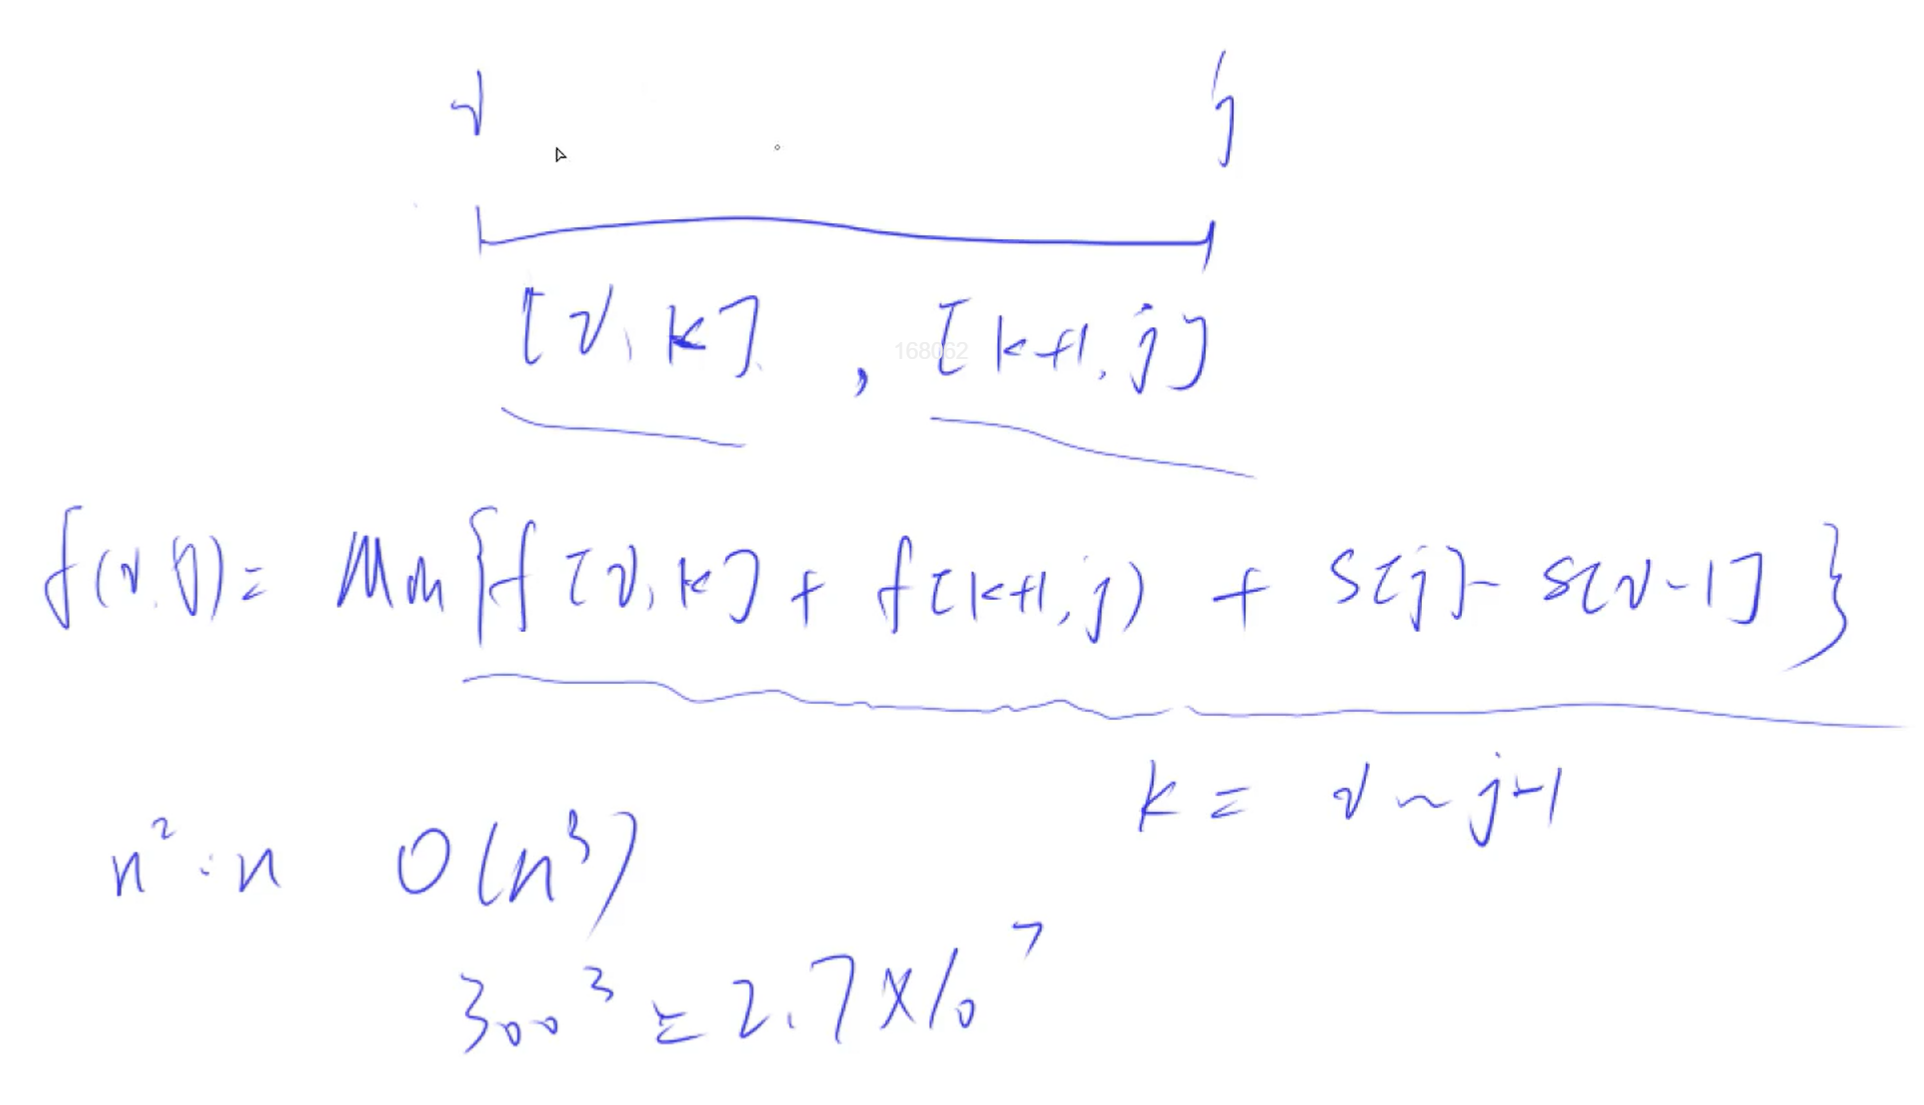 i j
[i, k] , [k+1, j]
168062
f(i, j) = Min{f[i, k] + f[k+1, j) + S[j] - S[i-1]}
k = i ~ j-1
n² · n O(n³)
300³ = 2.7 × 10⁷